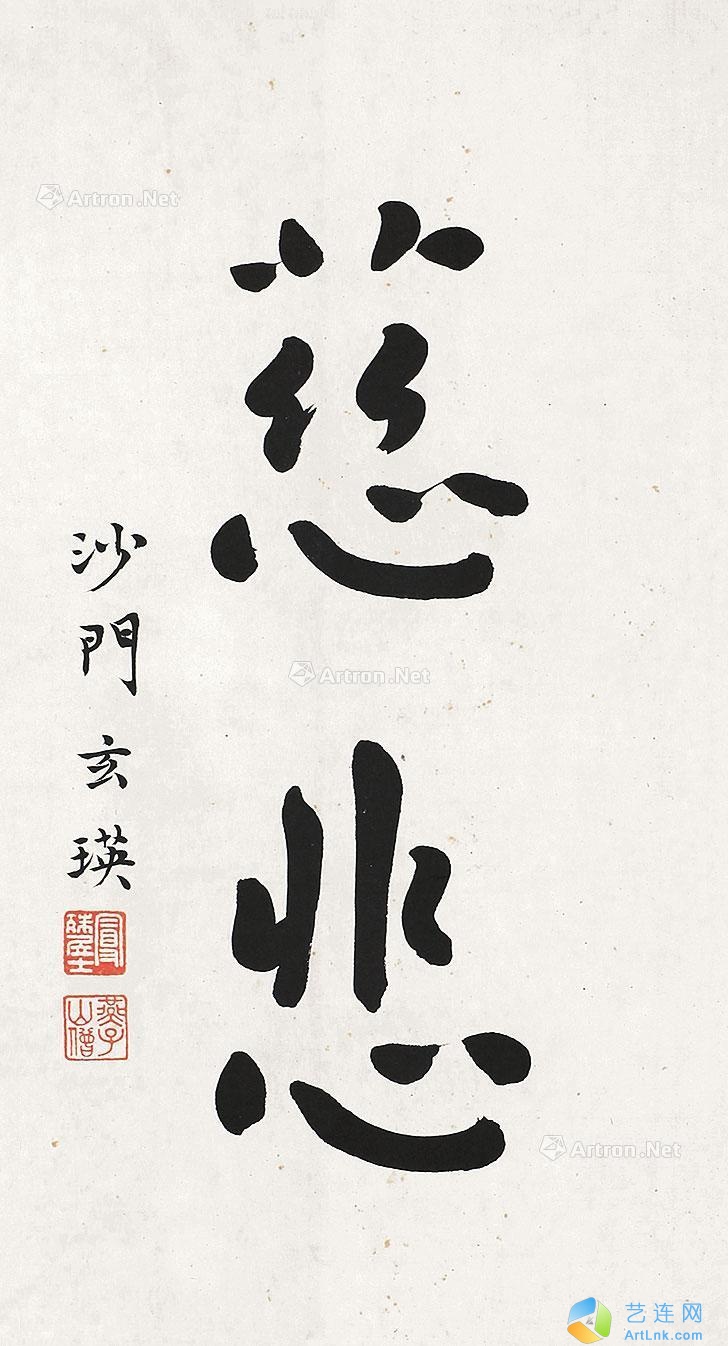 慈悲
沙門玄瑛
燕子山僧
Artron.Net
Artron.Net
Artron.Net
艺连网
ArtLnk.com